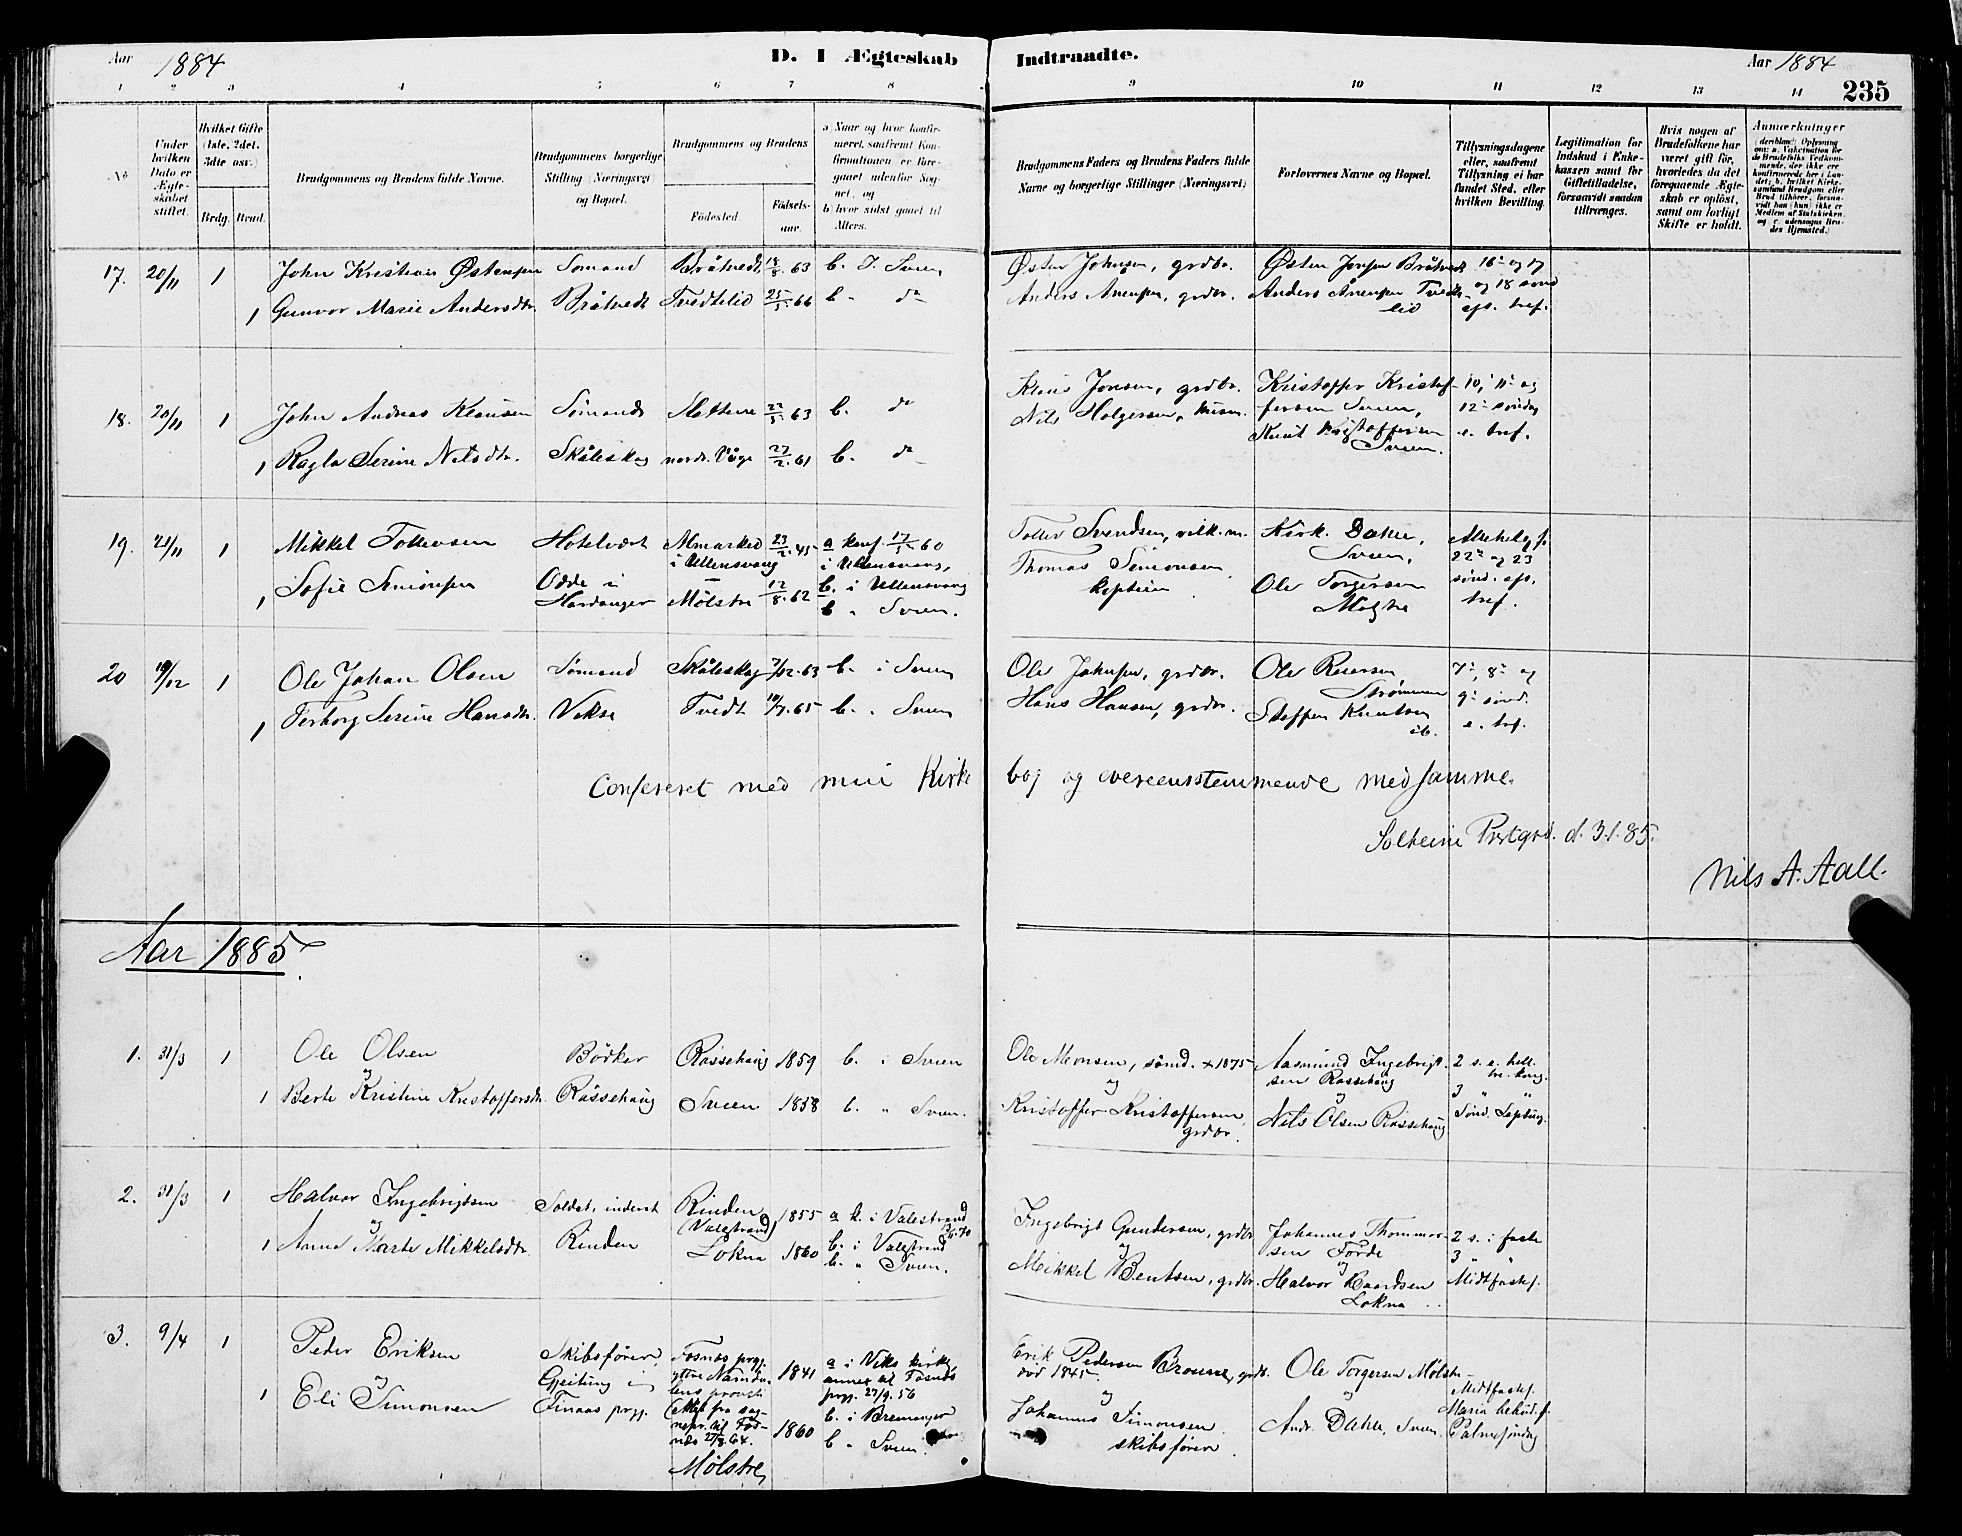 Aar 1884
D. I Ægteskab Indtraadte.
Aar 1884
235
1 2 3 4 5 6 7 8 9 10 11 12 13 14
No
Under hvilken Dato er Ægteskabet stiftet.
Hvilket Gifte (1ste, 2det, 3die osv.)
Brdg. Brud.
Brudgommens og Brudens fulde Navne.
Brudgommens borgerlige Stilling (Næringsvei) og Bopæl.
Brudgommens og Brudens
Fødested
Fødselsaar.
a) Naar og hvor konfirmeret, saafremt Konfirmationen er foregaaet udenfor Sognet, og
b) hvor sidst gaaet til Alters.
Brudgommens Faders og Brudens Faders fulde Navne og borgerlige Stillinger (Næringsvei)
Forlovernes Navne og Bopæl.
Tillysningsdagene eller, saafremt Tillysning ei har fundet Sted, efter hvilken Bevilling.
Legitimation for Indskud i Enkekassen samt for Giftetilladelse, forsaavidt saadan tiltrænges.
Hvis nogen af Brudefolkene har været gift før, hvorledes da det foregaaende Ægteskab er opløst, samt om lovligt Skifte er holdt.
Anmærkninger
17. 20/11 1 John Kristian Østensen Sömand Bråtvedt 18/8 63 b. I. Sveen Østen Johnsen, grdbr. Østen Jonsen Bråtvedt 16de og 17
1 Gunvor Marie Andersdtr. Bråtvedt Tvedtelid 25/5 66 b. do Anders Anensen, grdbr. Anders Anensen Tvedte- og 18 sønd
lid eft. tref.
18. 20/11 1 John Andreas Klausen Sömand Slottene 22/5 63 b. do Klaus Jonsen, grdbr. Kristoffer Kristof- 10, 11 og
fersen Sveen, 12 søndag
1 Ragla Serine Nilsdtr. Skåleskog nordr. Våge 27/2 61 b. do Nils Holgersen, husm. Knut Kristoffersen e. tref.
Sveen.
19. 21/11 1 Mikkel Tollevsen Hotelvært Almarked 23/2 45 a konf 17/5 60 Tollev Svendsen, Kirk. Dahle,
i Ullensvang i Ullensvang, Sveen, 22de og 23
1 Sofie Simonsen Odde i Hardanger Mølstre 12/8 62 b. i Ullensvang Thomas Simonsen Ole Torgersen sønd. eft.
b " Sveen. kaptein Mølstre tref.
20 19/12 1 Ole Johan Olsen Sømand Skåleskog 7/12 63 b. i Sveen Ole Johnsen, grdbr. Ole Reiersen 7, 8 og
Strømmen 9 sønd.
1 Torborg Serine Hansdtr. Vikse Tvedt 10/7 65 b. " Sveen Hans Hansen, grdbr. Steffen Knutsen e. tref.
ib.
Confereret med min Kirkebog og overeensstemmende med samme.
Solheim Prstgrd. d. 3.1.85.
Nils A. Aall.
Aar 1885.
1. 31/3 1 Ole Olsen Bödker Råssehaug 1859 b. i Sveen Ole Monsen, sømd. + 1875 Aasmund Ingebrigt- 2 s. e. hell.
og sen Råssehaug tre. kong.
1 Berte Kristine Kristoffersdtr. Råssehaug Sveen 1858 b. " Sveen. og og 3 " "
Kristoffer Kristoffersen Nils Olsen Råssehaug Sönd. Septuag.
grdbr.
2. 31/3 1 Halvor Ingebrigtsen Soldat, inderst Rinden 1855 a k. i Valestrand Ingebrigt Gundersen, grdbr Johannes Thommas- 2 s. i faste
og (Valestrand) 70 og sen Førde 3 "
1 Anna Marta Mikkelsdtr. Rinden Lokna 1860 b. i Valestrand Mikkel Bentsen, grdbr. og Midtfastes.
b. " Sveen. Halvor Baardsen
Lokna
3. 9/4 1 Peder Eriksen Skibsfører, Fosnæs prgj. 1841 a i Viks kirke Erik Pedersen Broune, grdb. Ole Torgersen Mølstre
og Gjeitung i yttre Namda- annex til Fosnæs död 1845. og Midtfastes.
1 Eli Simonsen Finaas prgj. lens provsti prgj. 27/9. 56 og Maria bebud. f.
(Att. fra sog- b. i Bremanger Johannes Simonsen Andr. Dahle, Sveen. Palmesöndag
nepr. til Fos- 1860 b " Sveen. skibsfører.
næs 27/8. 64.
Mølstre